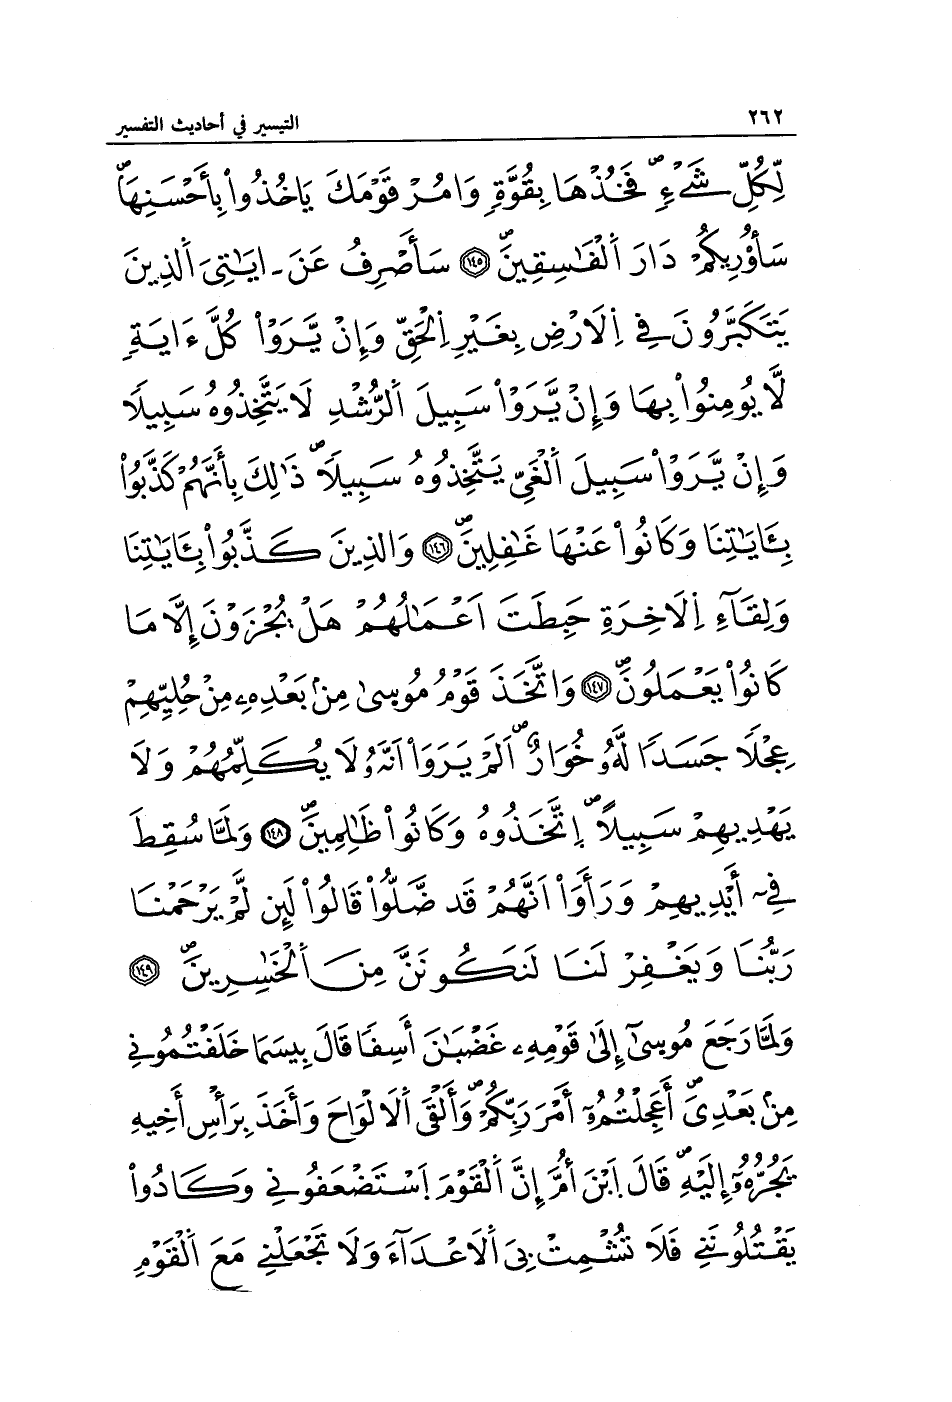 ٢٦٢
التيسير في أحاديث التفسير
لِّكُلِّ شَےْءٖۖ فَخُذْهَا بِقُوَّةٖ وَامُرْ قَوْمَكَ يَاخُذُواْ بِأَحْسَنِهَاۖ
سَأُوْرِيكُمْ دَارَ اَلْفَٰسِقِينَۖ ١٤٥ سَأَصْرِفُ عَنَ ـ ايَٰتِيَ اَلذِينَ
يَتَكَبَّرُونَ فِے اِلَارْضِ بِغَيْرِ اِلْحَقِّ وَإِنْ يَّرَوْاْ كُلَّ ءَايَةٖ
لَّا يُومِنُواْ بِهَا وَإِنْ يَّرَوْاْ سَبِيلَ اَلرُّشْدِ لَا يَتَّخِذُوهُ سَبِيلٗا
وَإِنْ يَّرَوْاْ سَبِيلَ اَلْغَيِّ يَتَّخِذُوهُ سَبِيلٗاۖ ذَٰلِكَ بِأَنَّهُمْ كَذَّبُواْ
بِـَٔايَٰتِنَا وَكَانُواْ عَنْهَا غَٰفِلِينَۖ ١٤٦ وَالذِينَ كَذَّبُواْ بِـَٔايَٰتِنَا
وَلِقَآءِ اِلَاخِرَةِ حَبِطَتَ اَعْمَٰلُهُمْ هَلْ يُجْزَوْنَ إِلَّا مَا
كَانُواْ يَعْمَلُونَۖ ١٤٧ وَاتَّخَذَ قَوْمُ مُوسىٰ مِنۢ بَعْدِهِۦ مِنْ حُلِيِّهِمْ
عِجْلٗا جَسَدٗا لَّهُۥ خُوَارٌۖ اَلَمْ يَرَوَاْ اَنَّهُۥ لَا يُكَلِّمُهُمْ وَلَا
يَهْدِيهِمْ سَبِيلًاۖ اِتَّخَذُوهُ وَكَانُواْ ظَٰلِمِينَۖ ١٤٨ وَلَمَّا سُقِطَ
فِےٓ أَيْدِيهِمْ وَرَأَوَاْ اَنَّهُمْ قَد ضَّلُّواْ قَالُواْ لَئِن لَّمْ يَرْحَمْنَا
رَبُّنَا وَيَغْفِرْ لَنَا لَنَكُونَنَّ مِنَ اَلْخَٰسِرِينَۖ ١٤٩
وَلَمَّا رَجَعَ مُوسىٰٓ إِلَىٰ قَوْمِهِۦ غَضْبَٰنَ أَسِفٗا قَالَ بِيسَمَا خَلَفْتُمُونِے
مِنۢ بَعْدِيَۖ أَعَجِلْتُمُۥٓ أَمْرَ رَبِّكُمْۖ وَأَلْقَى اَلَالْوَاحَ وَأَخَذَ بِرَأْسِ أَخِيهِ
يَجُرُّهُۥٓ إِلَيْهِۖ قَالَ اَبْنَ أُمَّ إِنَّ اَلْقَوْمَ اَسْتَضْعَفُونِے وَكَادُواْ
يَقْتُلُونَنِے فَلَا تُشْمِتْ بِيَ اَلَاعْدَآءَ وَلَا تَجْعَلْنِے مَعَ اَلْقَوْمِ